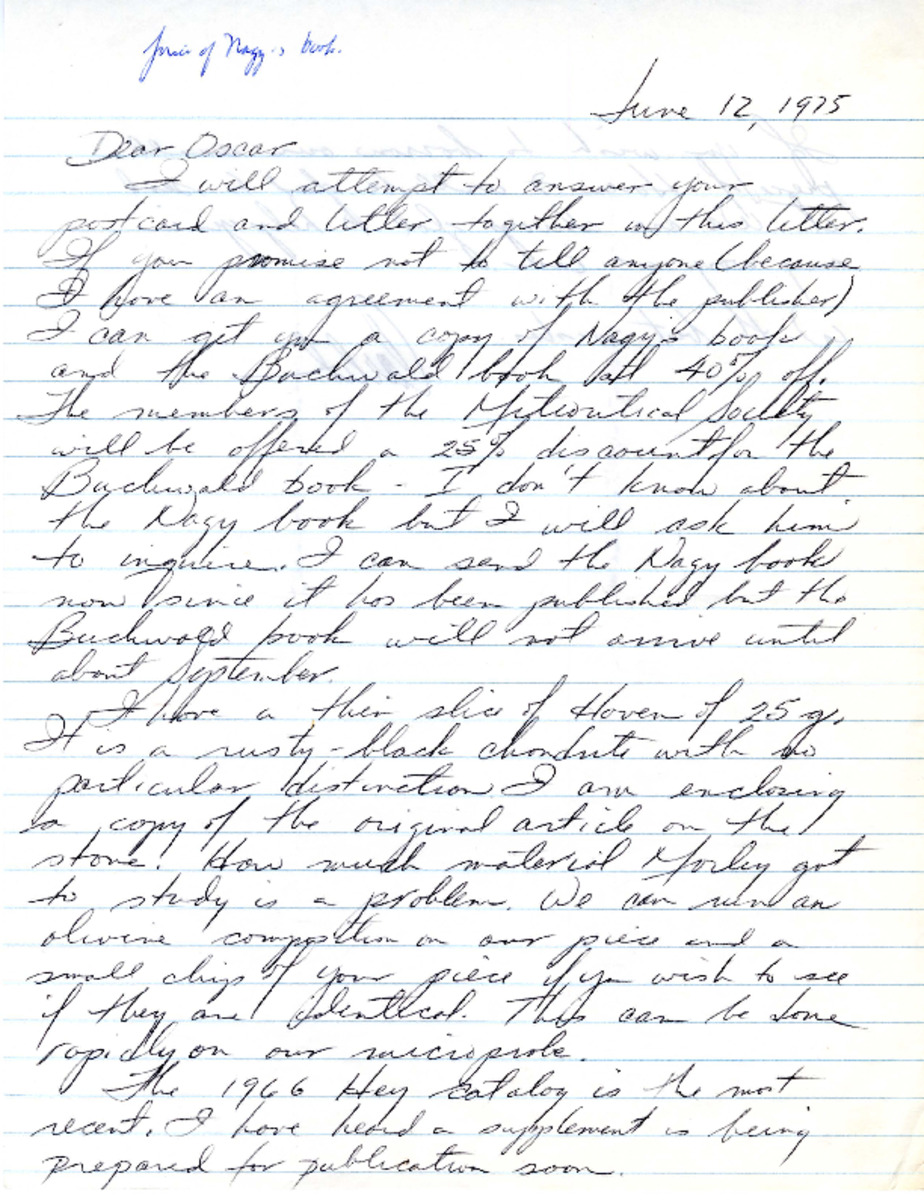 price of Nagy's book.
June 12, 1975
Dear Oscar
I will attempt to answer your
postcard and letter together in this letter.
If you promise not to tell anyone (because
I have an agreement with the publisher)
I can get you a copy of Nagy's book
and the Buchwald book at 40% off.
The members of the Meteoritical Society
will be offered a 25% discount for the
Buchwald book - I don't know about
the Nagy book but I will ask him
to inquire. I can send the Nagy book
now since it has been published but the
Buchwald book will not arrive until
about September.
I have a thin slice of Hoven of 25 g.
It is a rusty-black chondrite with no
particular distinction I am enclosing
a copy of the original article on the
stone. How much material Morley got
to study is a problem. We can run an
olivine composition on our piece and a
small chip of your piece if you wish to see
if they are identical. This can be done
rapidly on our microprobe.
The 1966 Hey catalog is the most
recent. I have heard a supplement is being
prepared for publication soon.